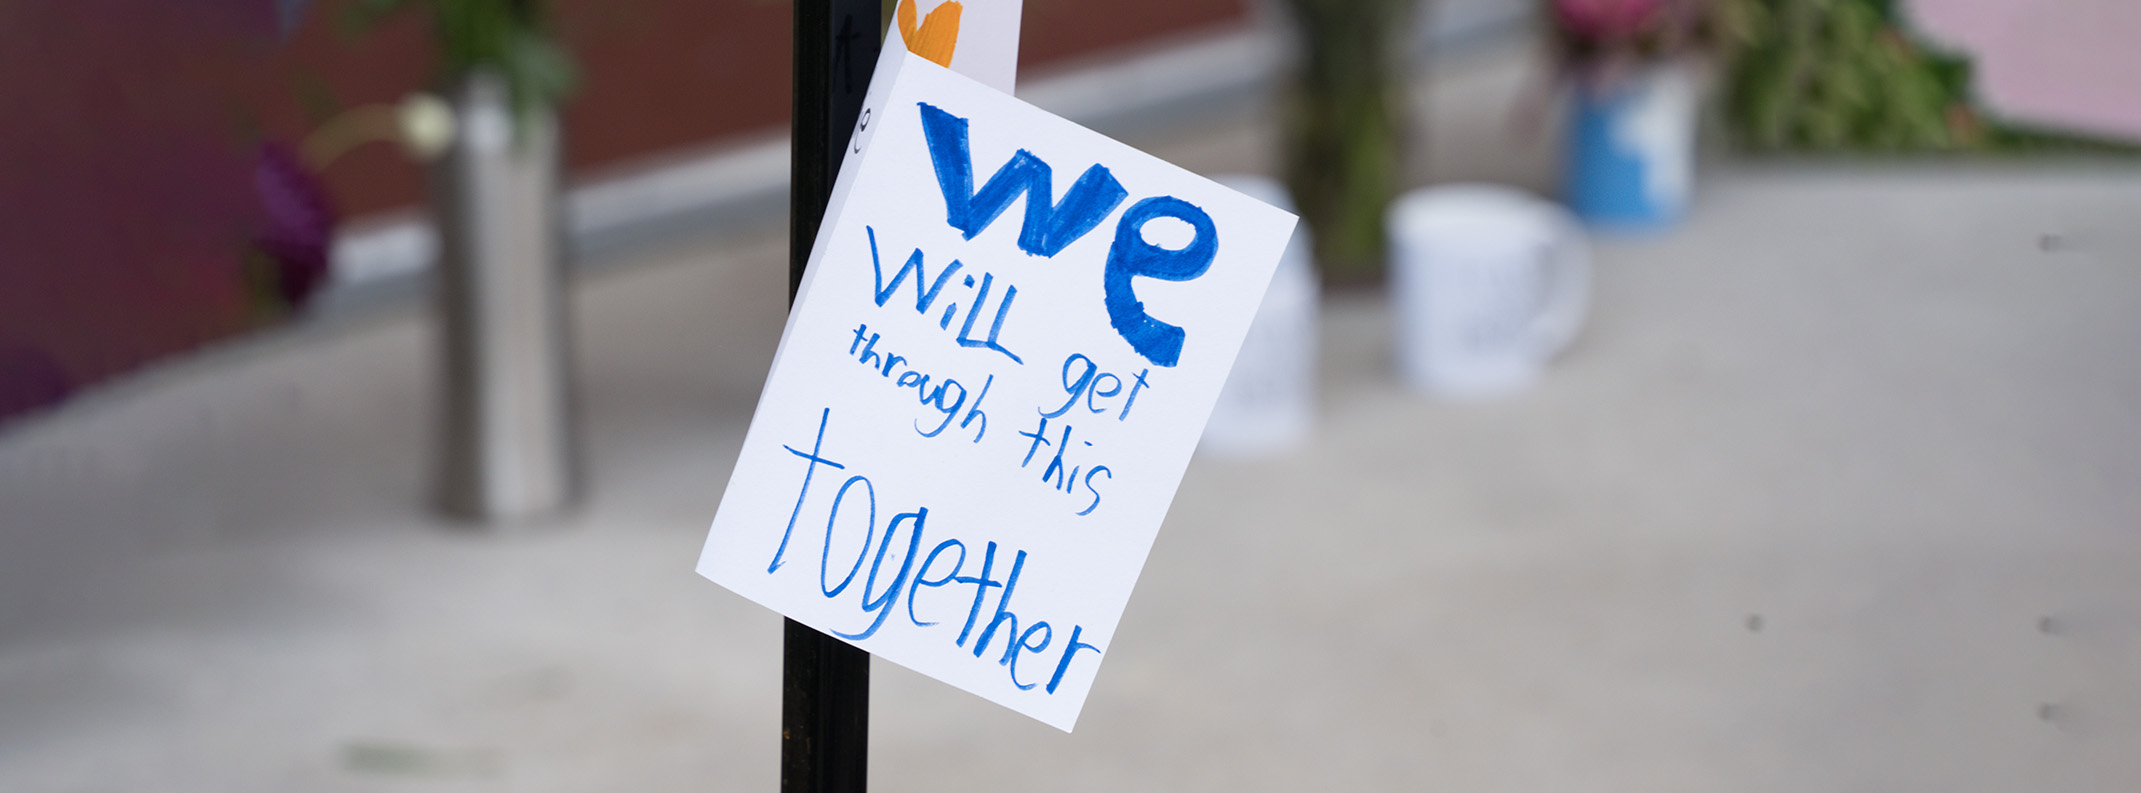 we
will get
through this
together